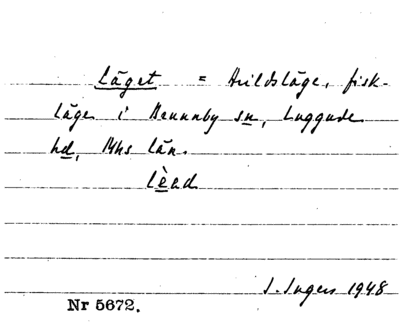 Läget = Arildsläge, fisk-
läge i Brunnby sn, Luggude
hd, Mhs län.
lèad
I. Ingers 1948
Nr 5672.